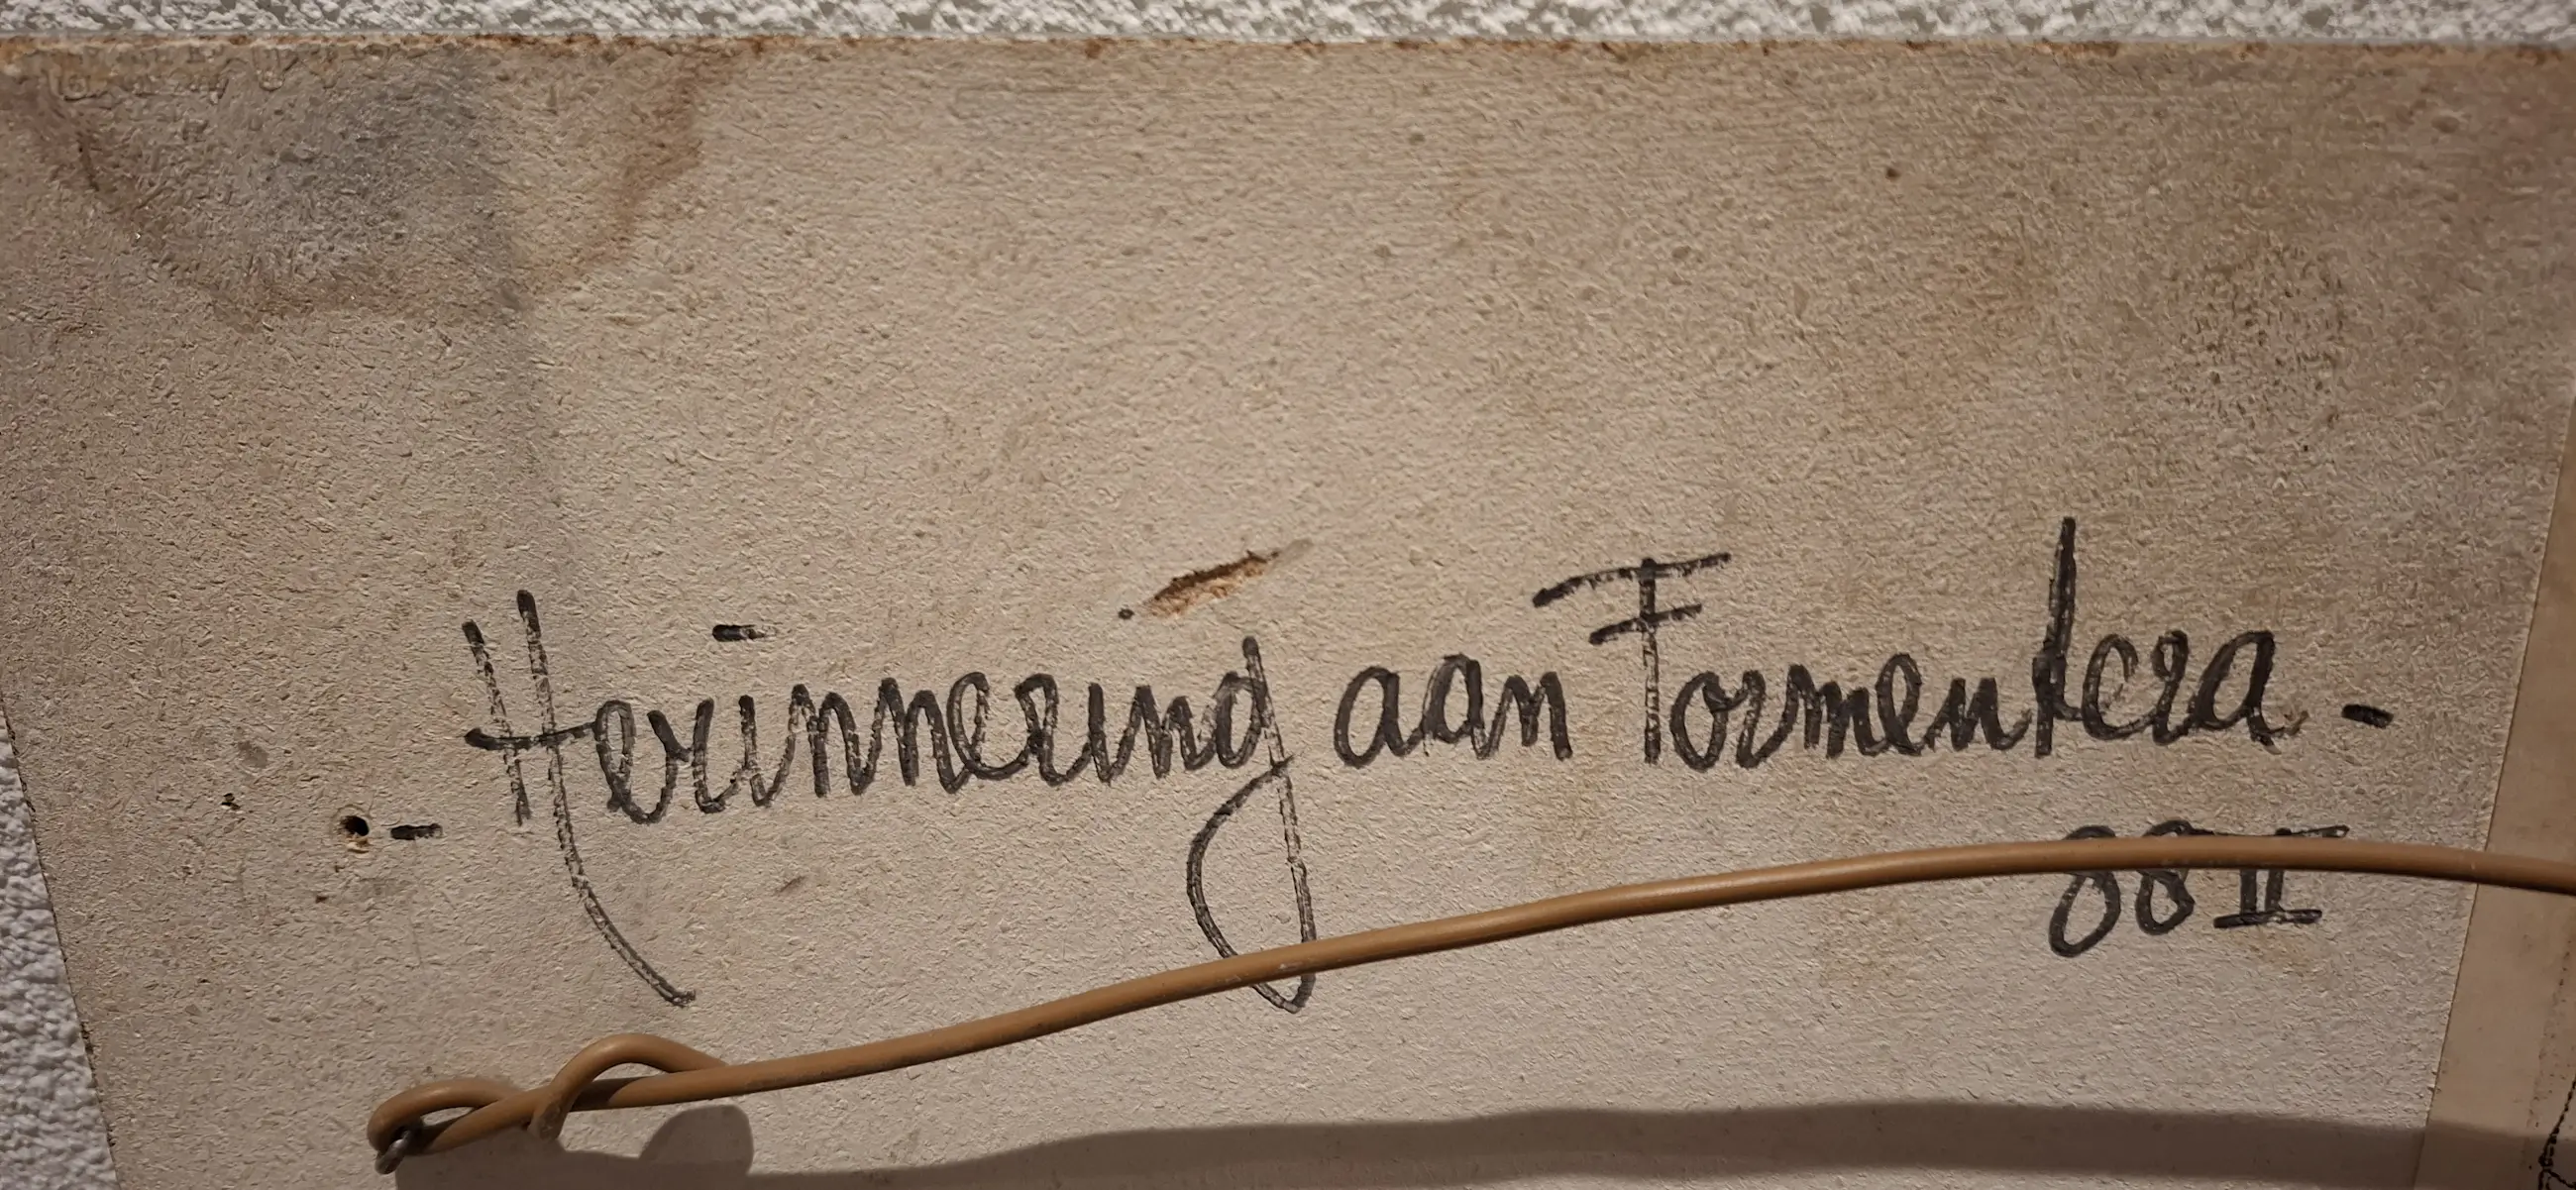 - Herinnering aan Formentera -
88 II